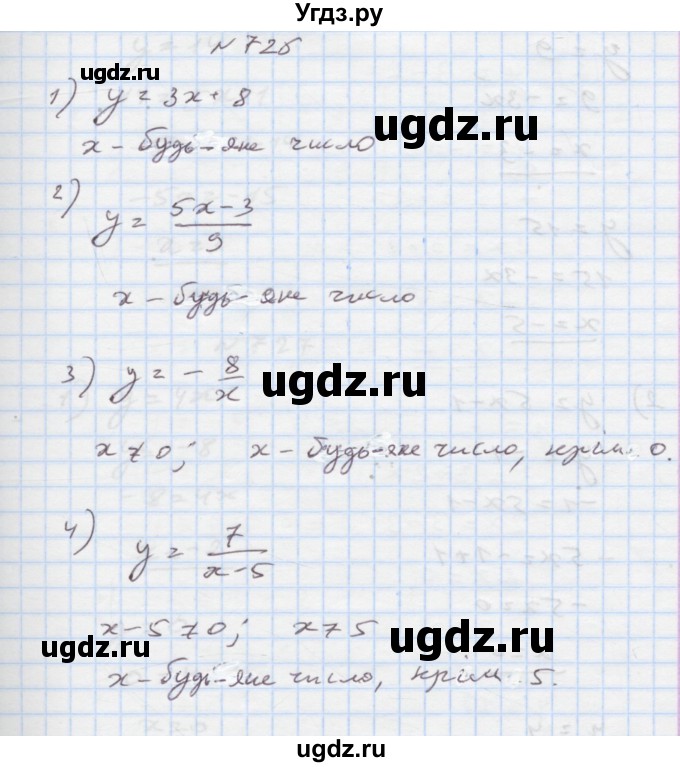 Угдз.ру
№ 726
ugdz.ru
1) y = 3x + 8
ugdz.ru
x - будь-яке число
2) y = 5x-3/9
x - будь-яке число
ugdz.ru
3) y = - 8/x
ugdz.ru
x ≠ 0; x - будь-яке число, крім 0.
4) y = 7/x-5
x-5 ≠ 0; x ≠ 5
ugdz.ru
ugdz.ru
x - будь-яке число, крім 5.
ugdz.ru